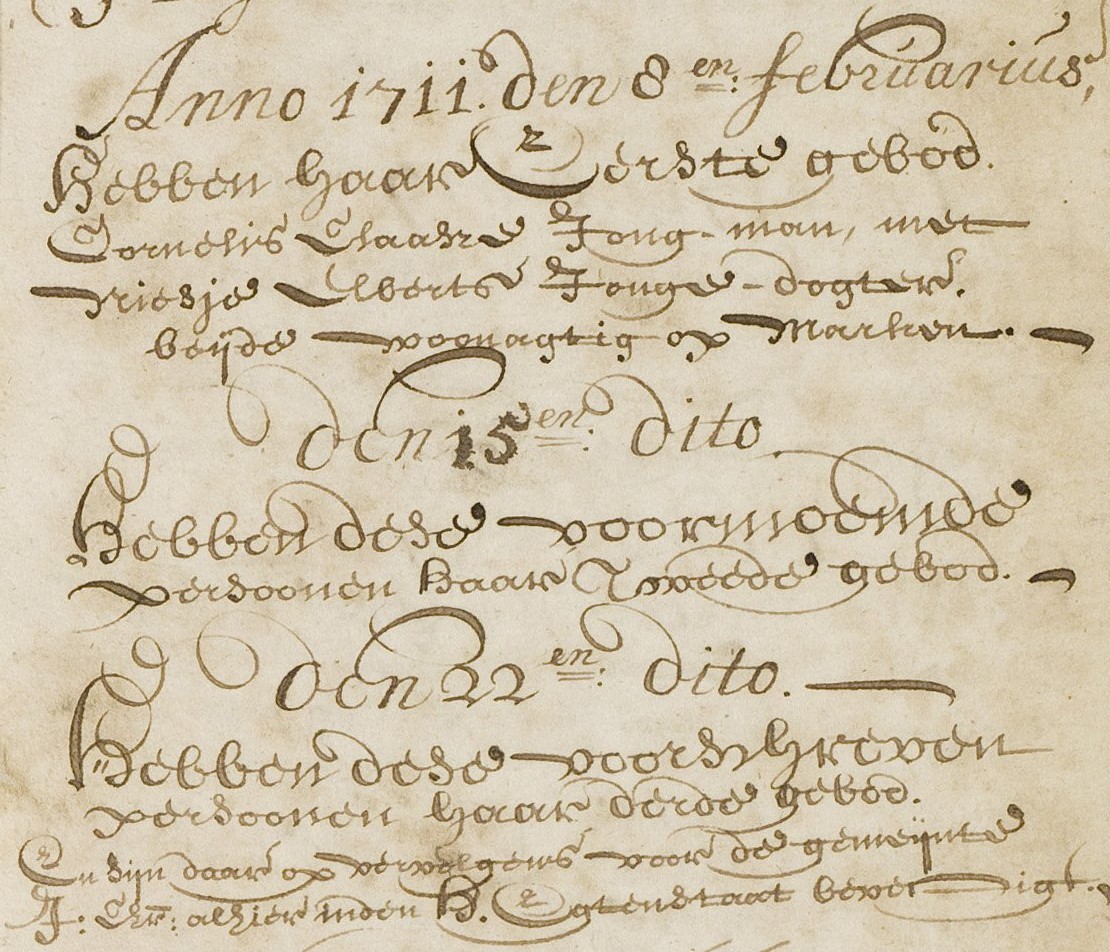 Anno 1711. den 8en: februarius,
Hebben haar Eerste gebod.
Cornelis Claasze Jong-man, met
Triesje Elberts Jonge-dogter.
beijde woonagtig op Marken.
den 15en: dito.
Hebben dese voornoemde
persoonen haar Tweede gebod.
den 22en: dito.
Hebben dese voorschreven
persoonen haar derde gebod.
En sijn daar op vervolgens voor de gemeijnte
J: Chr: alhier inden H. Egtenstaat bevestigt.